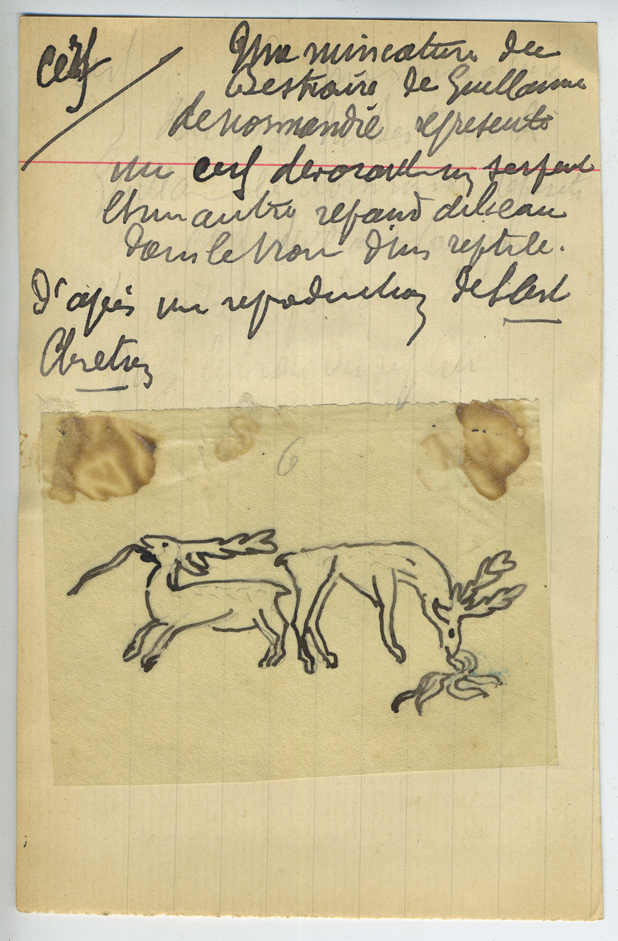 cerf
Une miniature du
Bestiaire de Guillaume
de Normandie représente
un cerf dévorant un serpent
et un autre répand de l'eau
dans le trou d'un reptile.
D'après un reproduction de l'art
Chretien
6